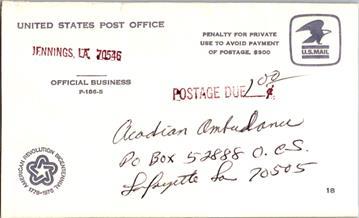 UNITED STATES POST OFFICE
JENNINGS, LA 70546
OFFICIAL BUSINESS
P-166-S
PENALTY FOR PRIVATE
USE TO AVOID PAYMENT
OF POSTAGE, $300
U.S.MAIL
POSTAGE DUE 1.00 ¢
Acadian Ambulance
PO Box 52888 O.C.S.
Lafayette La 70505
AMERICAN REVOLUTION BICENTENNIAL
1776-1976
18